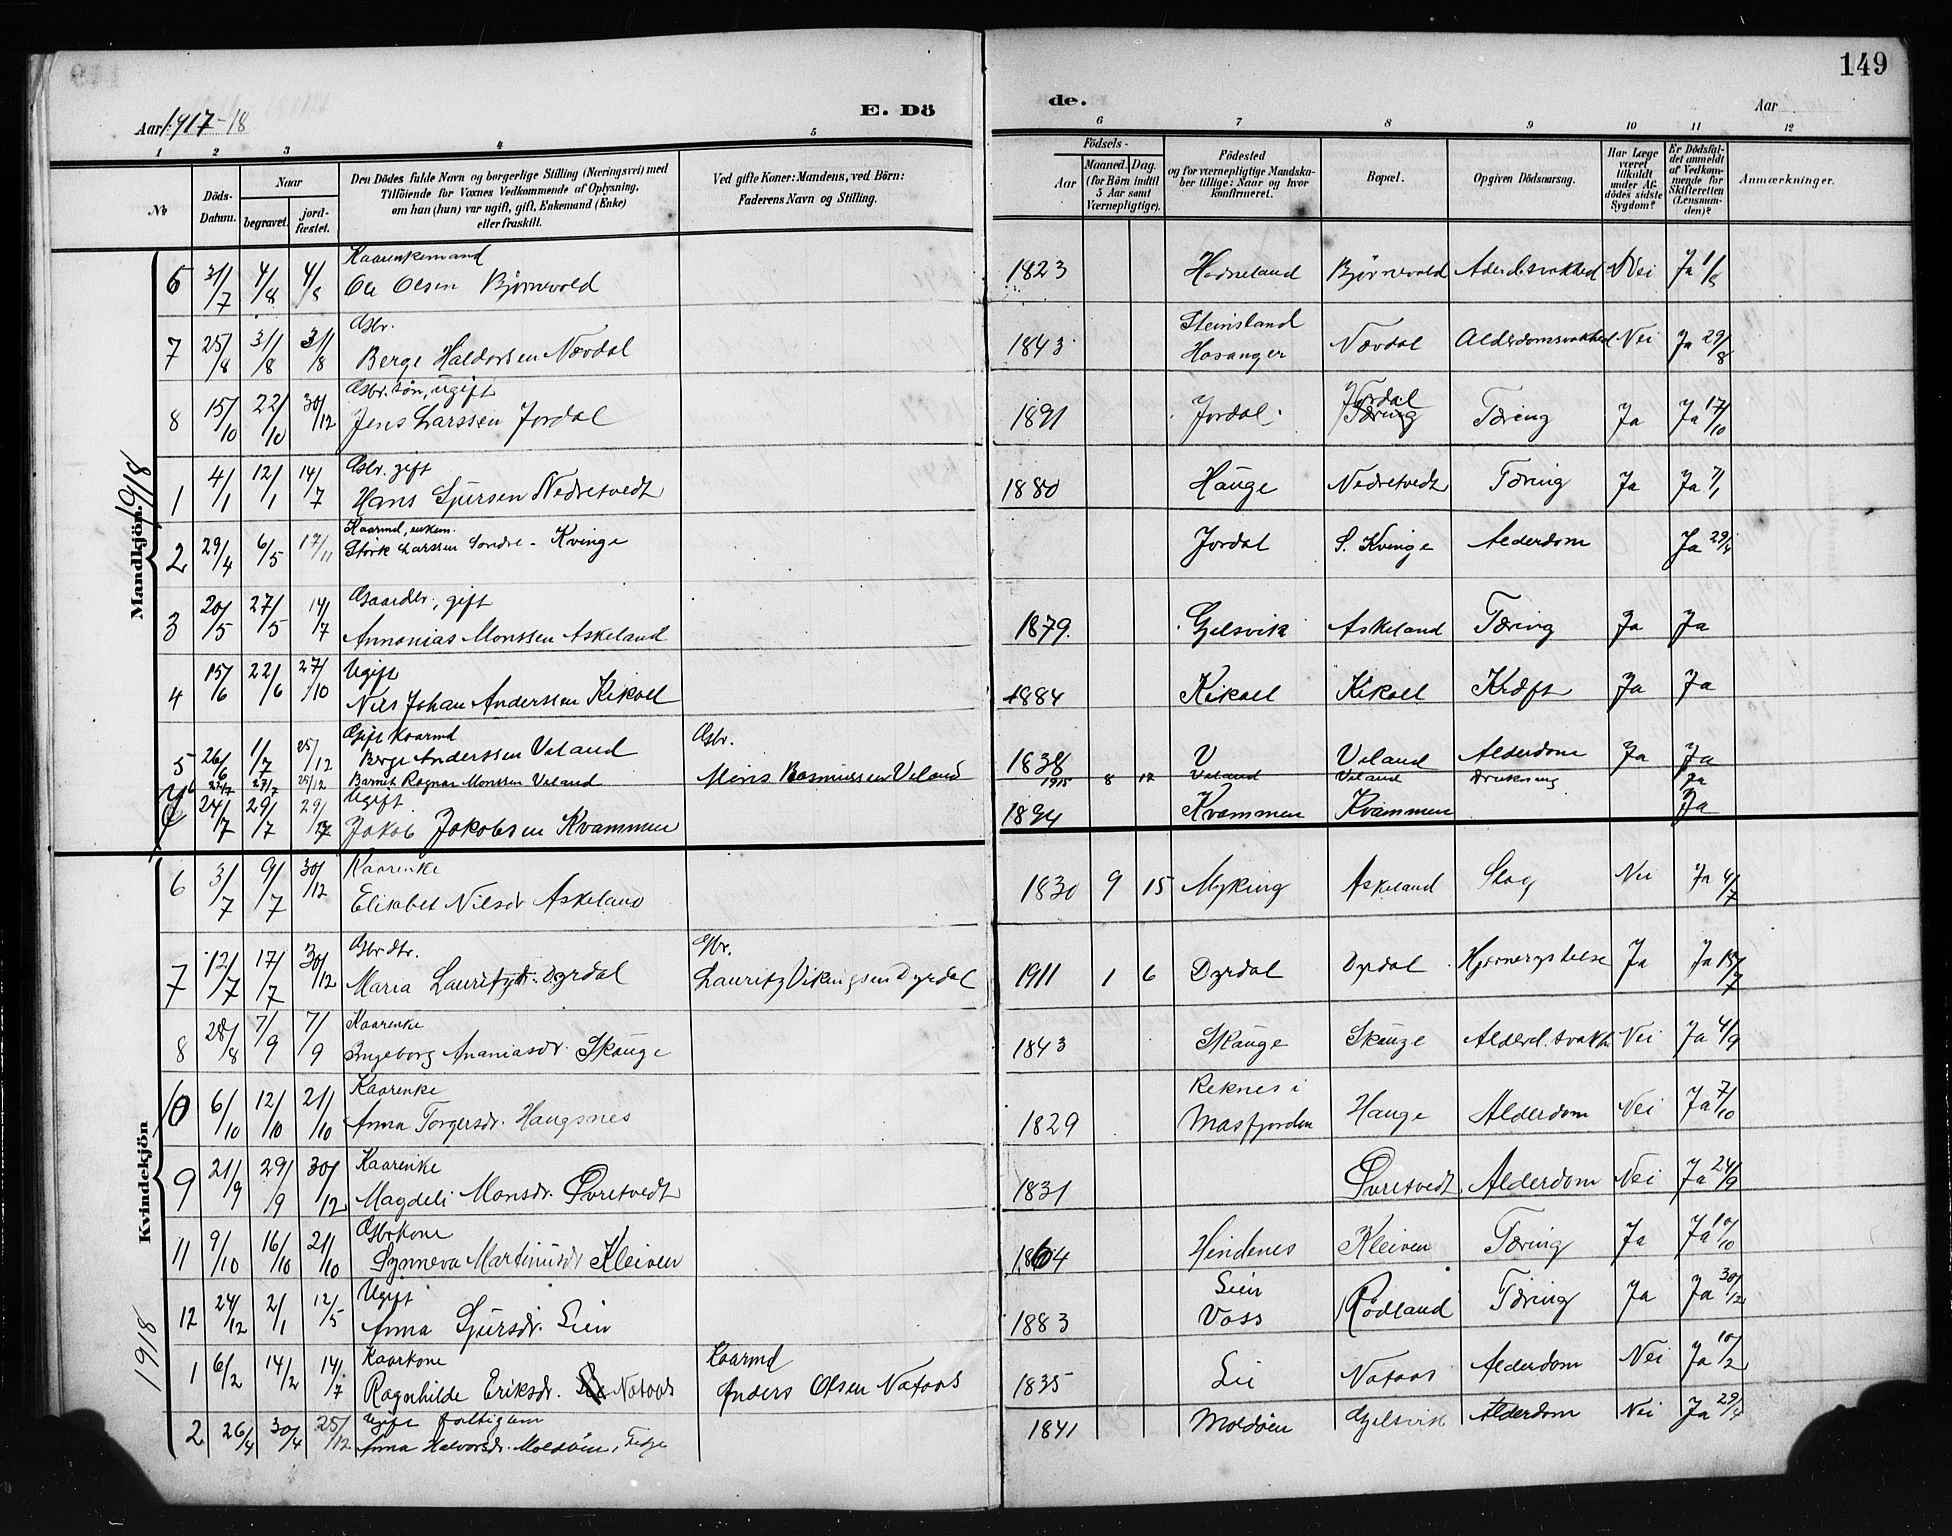 149
Aar 1917-18
E. Dö
de.
Aar
1 2 3 4 5 6 7 8 9 10 11 12
№
Döds-Datum.
Naar
begravet.
jord-fæstet.
Den Dödes fulde Navn og borgerlige Stilling (Næringsvei) med
Tilföiende for Voxnes Vedkommende af Oplysning,
om han (hun) var ugift, gift, Enkemand (Enke)
eller fraskilt.
Ved gifte Koner: Mandens, ved Börn:
Faderens Navn og Stilling.
Födsels-
Aar
Maaned. Dag.
(for Börn indtil
5 Aar samt
Værnepligtige).
Födested
og for værnepligtige Mandska-
ber tillige: Naar og hvor
konfirmeret.
Bopæl.
Opgiven Dödsaarsag.
Har Læge
været
tilkaldt
under Af-
dödes sidste
Sygdom?
Er Dödsfal-
det anmeldt
af Vedkom-
mende for
Skifteretten
(Lensman-
den)?
Anmærkninger.
Mandkjön. 1918
Kaarenkemand
6 31/7 4/8 4/8 Ole Olsen Bjørnevold 1823 Hodneland Bjørnevold Nei Ja 1/8
Gbr.
7 25/8 31/8 31/8 Berge Haldorsen Nævdal 1843 Steinsland Hosanger Nævdal Alderdomsvakhed Nei Ja 29/8
Gbr. søn, ugift
8 15/10 22/10 30/12 Jens Larssen Jordal 1891 Jordal Jordal Tæring Tæring Ja Ja 17/10
Gbr. gift
1 4/1 12/1 14/7 Hans Sjursen Nedretvedt 1880 Hauge Nedretvedt Tæring Ja Ja 7/1
Kaarmd, enkem.
2 29/4 6/5 17/11 Larssen Søndre-Kvinge Jordal S. Kvinge Alderdom Ja 29/4
Gaardbr., gift
3 20/5 27/5 14/7 Annanias Monssen Askeland 1879 Gjelsvik Askeland Tæring Ja Ja
Ugift
4 15/6 22/6 27/10 Nils Johan Anderssen Kikall 1884 Kikall Kikall Kræft Ja Ja
Gift Kaarmd
5 26/6 1/7 25/12 Berge Anderssen Veland Gbr. 1838 V Veland Alderdom Ja Ja
22/7 27/7 25/12 Barnet Ragnar Monssen Veland Mons Rasmussen Veland 1915 8 12 Veland Veland Drukning Ja
Ugift
24/7 29/7 29/12 Jakob Jakobsen Kvammen 1894 Kvammen Kvammen Ja
Kvindekjön
Kaarenke
6 3/7 9/7 30/12 Elisabet Nilsdr Askeland 1830 9 15 Myking Askeland Slag Nei Ja 4/7
Gbr dtr. Gbr.
7 12/7 17/7 30/12 Maria Lauritzdtr. Dyrdal Lauritz Vikingsen Dyrdal 1911 1 6 Dyrdal Dyrdal Hjernerystelse Ja Ja 15/7
Kaarenke
8 28/8 7/9 7/9 Ingeborg Ananiasdr. Skauge 1843 Skauge Skauge Alderd. svakh. Nei Ja 4/9
Kaarenke
10 6/10 12/10 21/10 Anna Torgersdr. Haugsnes 1829 Reknes i Masfjorden Hauge Alderdom Nei Ja 7/10
Kaarenke
9 21/9 29/9 30/12 Magdeli Monsdr. Øvretvedt 1831 Øvretvedt Alderdom Nei Ja 24/9
Gbrkone
11 9/10 16/10 21/10 Synneva Martinusdr Kleiven 1864 Hindenes Kleiven Tæring Ja Ja 10/10
Ugift
12 24/12 2/1 12/5 Anna Sjursdr. Lien 1883 Lien Voss Rødland Tæring Ja Ja 30/12
1918
Kaarkone Kaarmd
1 6/2 14/2 14/7 Ragnhilde Eriksdr. Nataas Anders Olsen Nataas 1835 Lie Nataas Alderdom Nei Ja 10/2
Ugift fattiglem
2 26/4 30/4 25/12 Anna Halvorsdr. Moldøen 1841 Moldøen Gjelsvik Alderdom Nei Ja 29/4